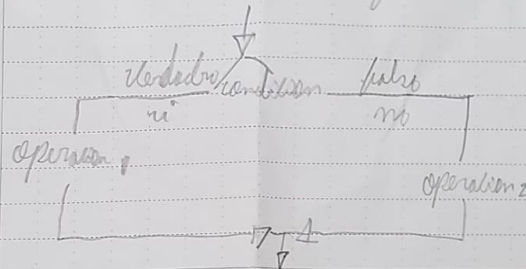 Verdadro condision falso
si no
operasion 1
operasion 2